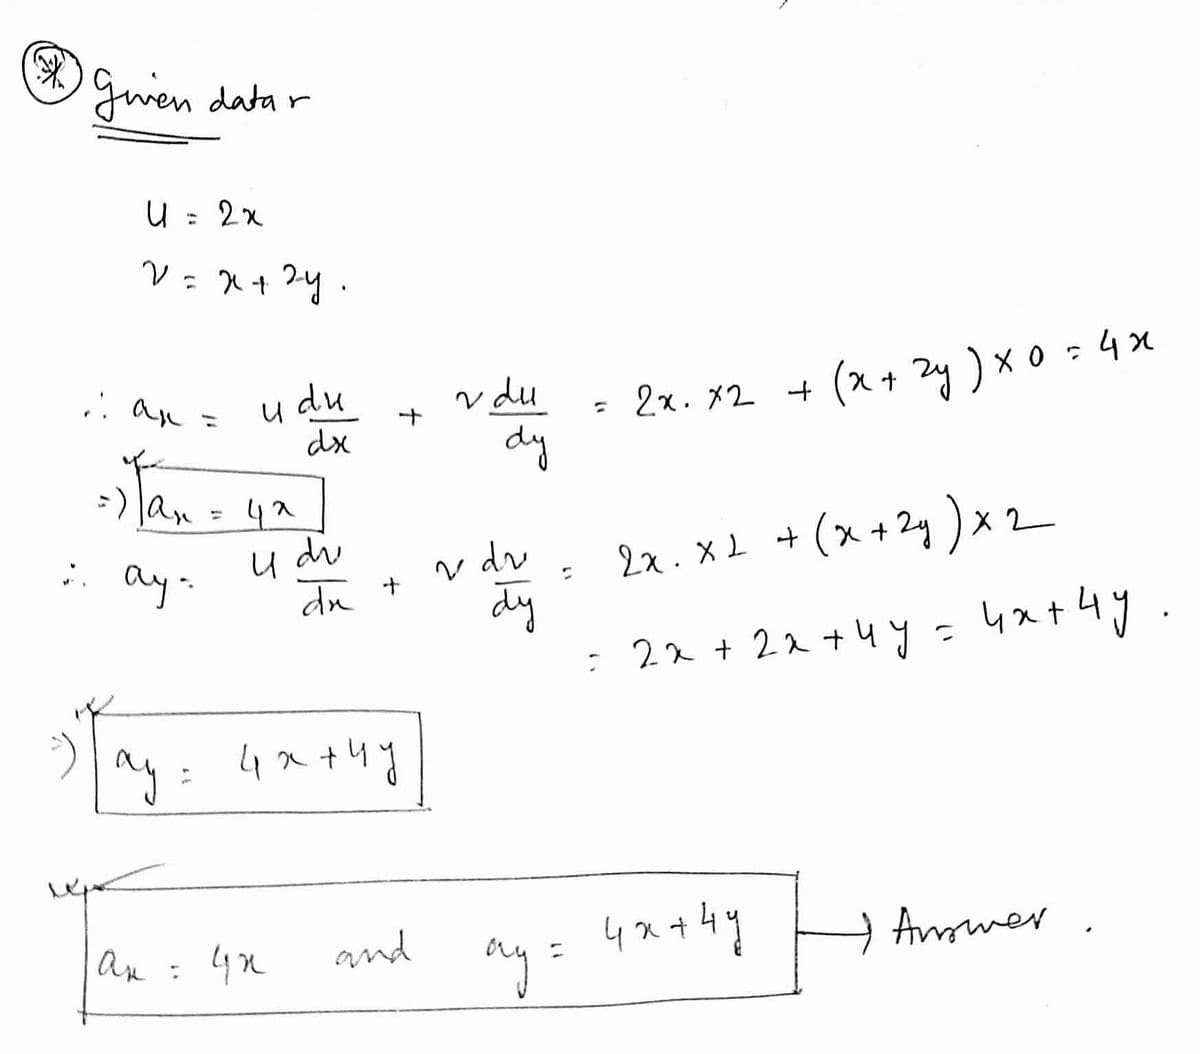 Given data r
u = 2x
v = x + 2y .
∴ ax = u du/dx + v du/dy = 2x. x2 + (x + 2y) x 0 = 4x
=) ax = 4x
∴ ay = u dv/dx + v dv/dy = 2x. x 1 + (x + 2y) x 2
= 2x + 2x + 4y = 4x + 4y .
=) ay = 4x + 4y
ax = 4x and ay = 4x + 4y → Answer .